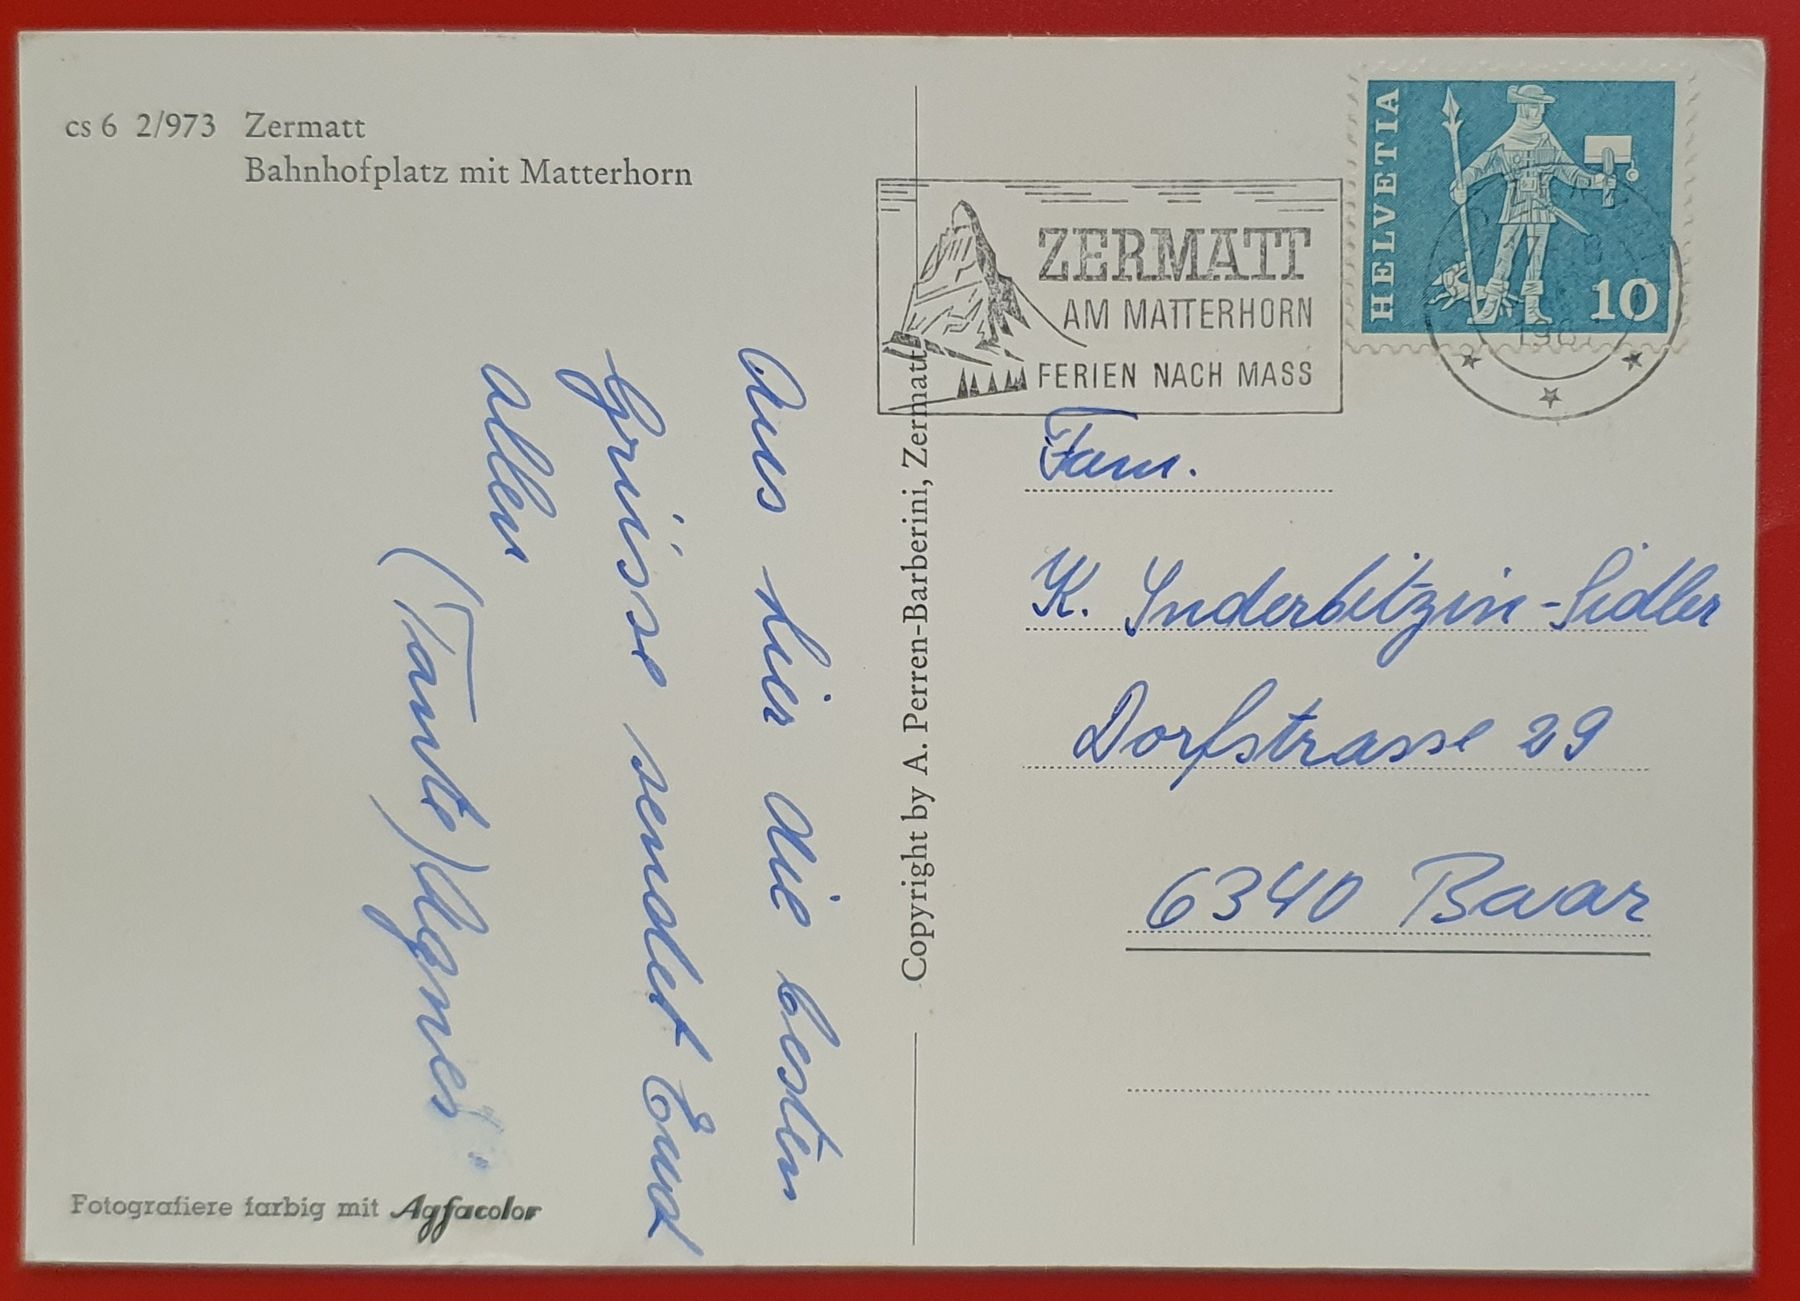 cs 6 2/973 Zermatt
Bahnhofplatz mit Matterhorn
Aus hier die besten
Grüsse sendet Euch
allen
(Tante) Agnes
Fotografiere farbig mit Agfacolor
Copyright by A. Perren-Barberini, Zermatt
ZERMATT
AM MATTERHORN
FERIEN NACH MASS
HELVETIA
10
Fam.
K. Inderbitzin-Sidler
Dorfstrasse 29
6340 Baar